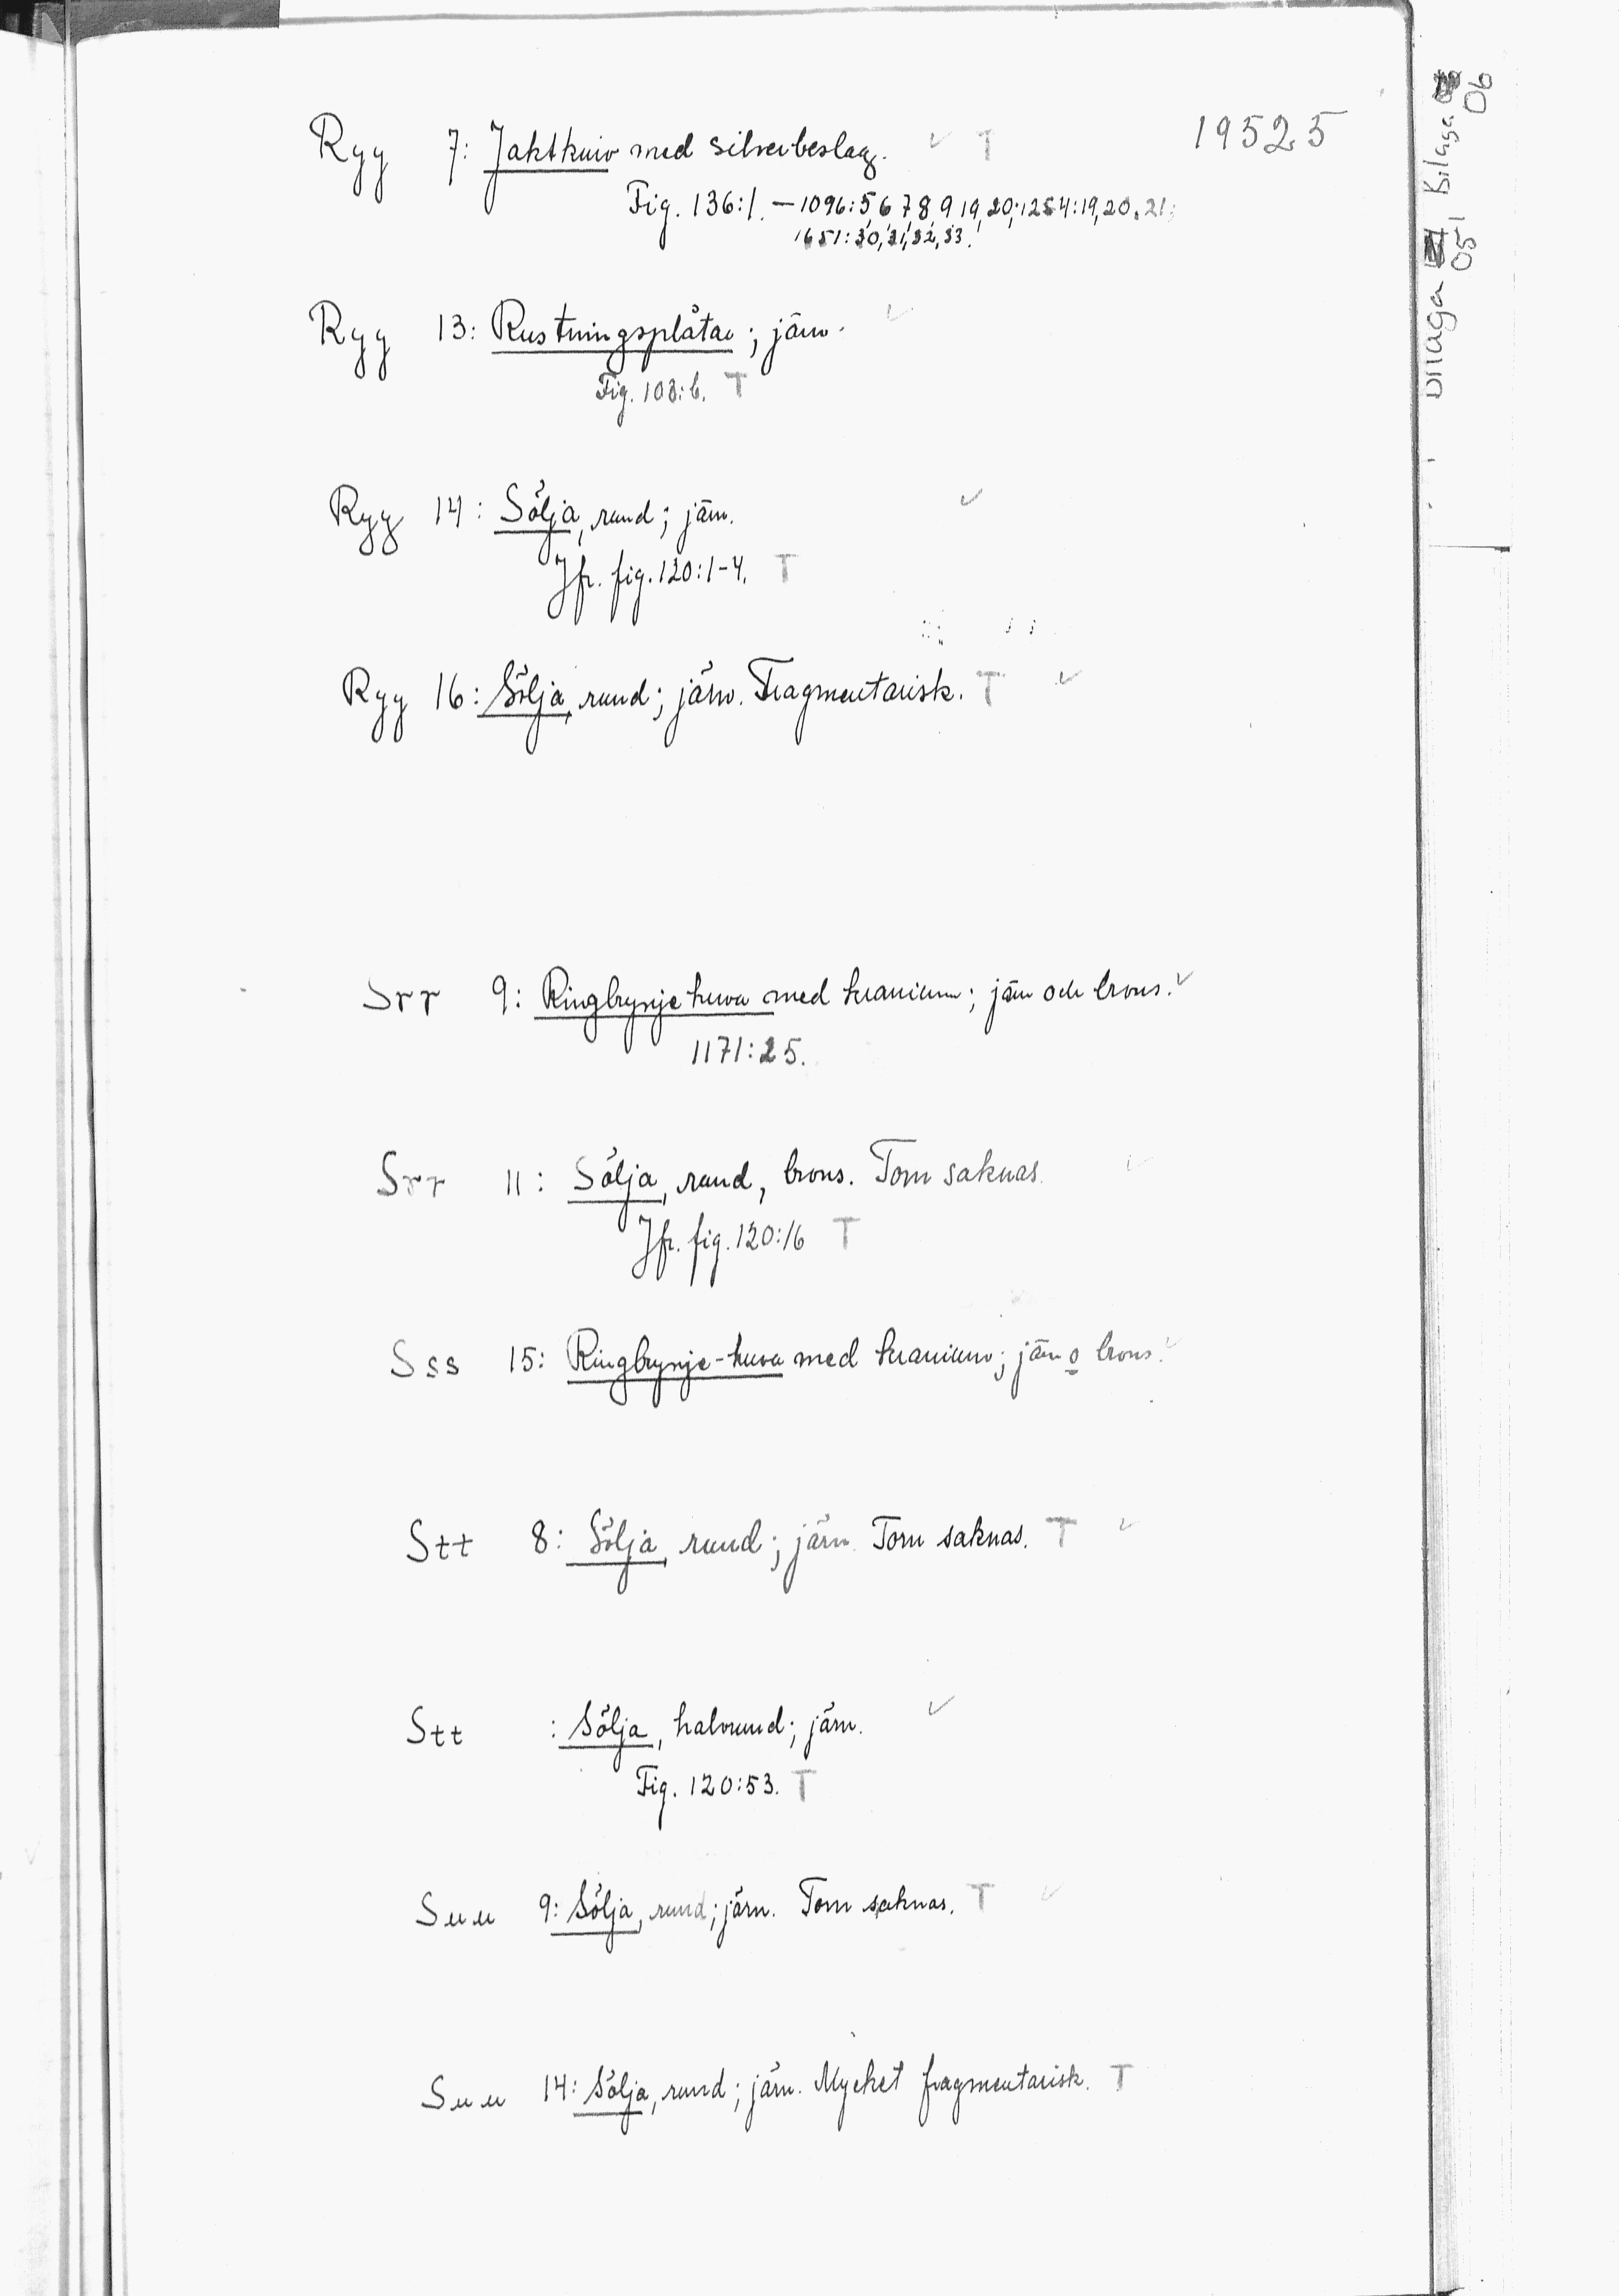 19525
Ryy 7: Jaktkniv med silverbeslag. ✓ T
Fig. 136:1. — 1096:5,6,7,8,9,19,20; 1254:19,20,21;
1651:30,31,32,33.
Ryy 13: Rustningsplåtar; järn. ✓
Fig. 103:6. T
Ryy 14: Sölja, rund; järn. ✓
Jfr. fig. 120:1-4. T
Ryy 16: Sölja, rund; järn. Fragmentarisk. T ✓
Srr 9: Ringbrynjehuva med kranium; järn och brons. ✓
1171:25.
Srr 11: Sölja, rund, brons. Torn saknas. ✓
Jfr. fig. 120:16 T
Sss 15: Ringbrynje-huva med kranium; järn o brons. ✓
Stt 8: Sölja, rund; järn. Torn saknas. T ✓
Stt : Sölja, halvrund; järn. ✓
Fig. 120:53. T
Suu 9: Sölja, rund; järn. Torn saknas. T ✓
Suu 14: Sölja, rund; järn. Mycket fragmentarisk. T
Bilaga 05
Bilaga 06